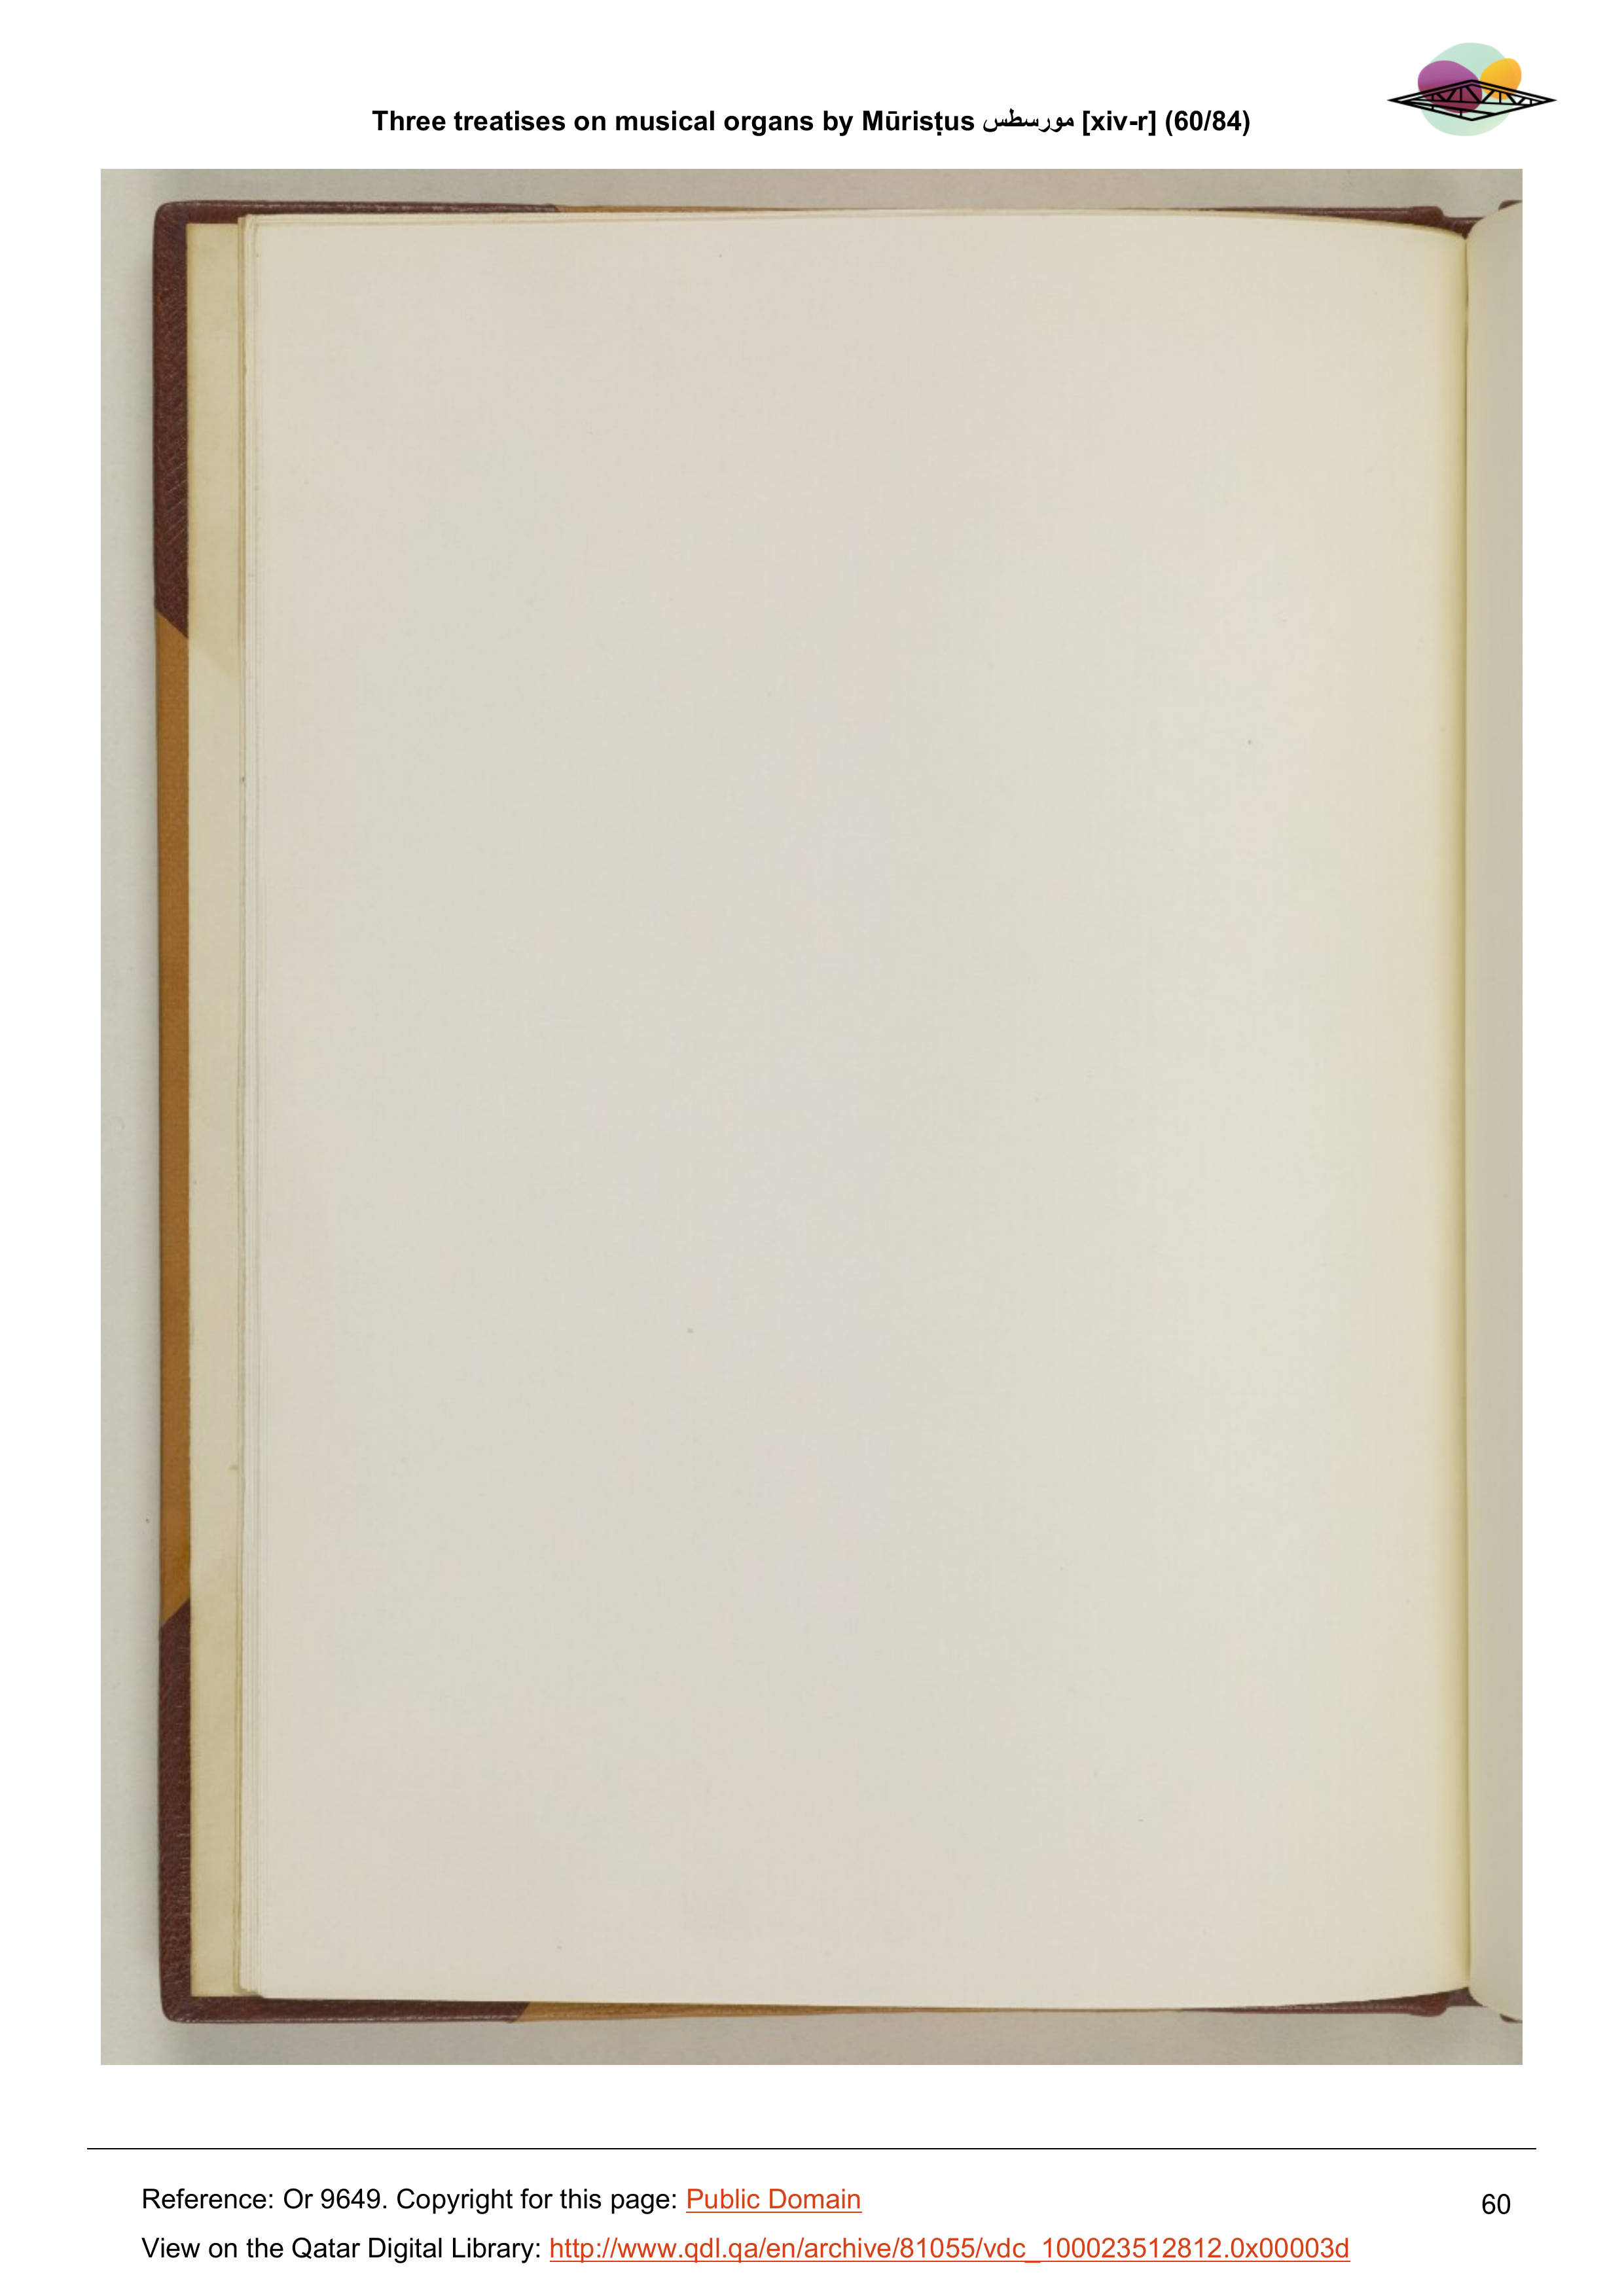 Three treatises on musical organs by Mūrisṭus مورسطس [xiv-r] (60/84)
Reference: Or 9649. Copyright for this page: Public Domain
60
View on the Qatar Digital Library: http://www.qdl.qa/en/archive/81055/vdc_100023512812.0x00003d